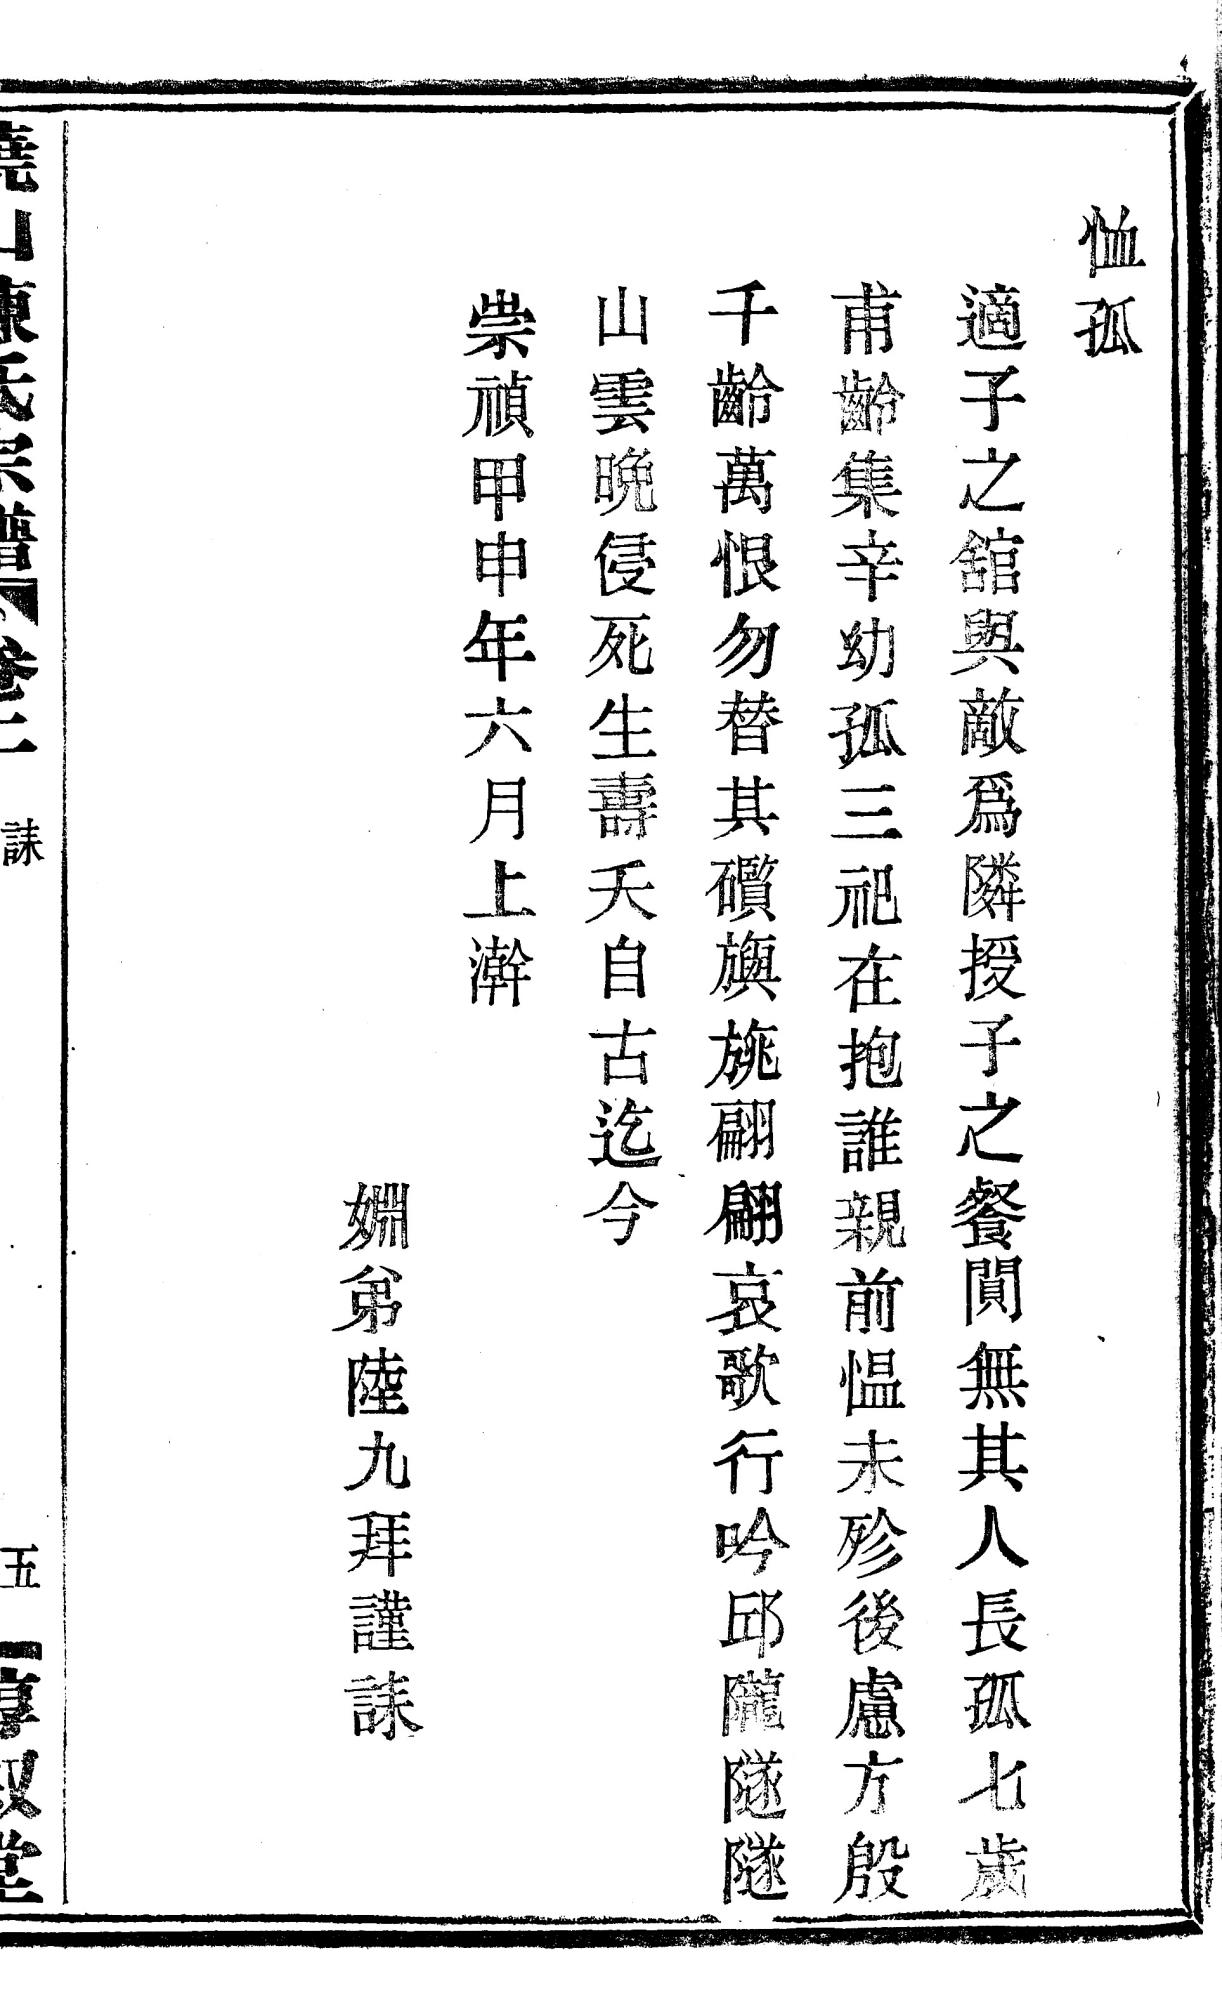 恤孤
適子之舘與敵爲隣授子之餐閴無其人長孤七歲
甫齡集辛幼孤三祀在抱誰親前愠未殄後慮方殷
千齡萬恨勿替其礩旟旐翩翩哀歌行吟邱隴隧隧
山雲晩侵死生壽夭自古迄今
崇禎甲申年六月上澣
婣弟陸九拜謹誄
山陳氏宗譜 卷二 誄 五 惇叙堂